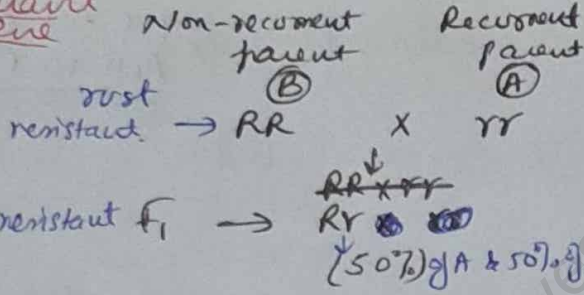 Non-recurrent Recurrent
parent parent
Ⓑ Ⓐ
rust
resistant. → RR X rr
↓
RR X rr
resistant F₁ → Rr
(50%) of A & 50% of